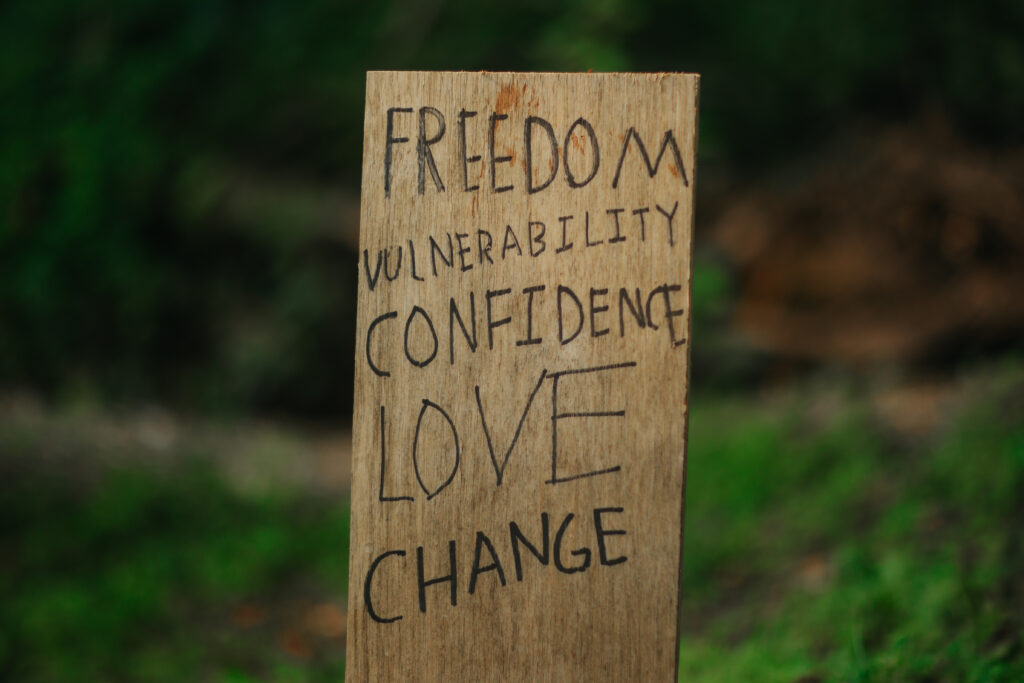 FREEDOM
VULNERABILITY
CONFIDENCE
LOVE
CHANGE